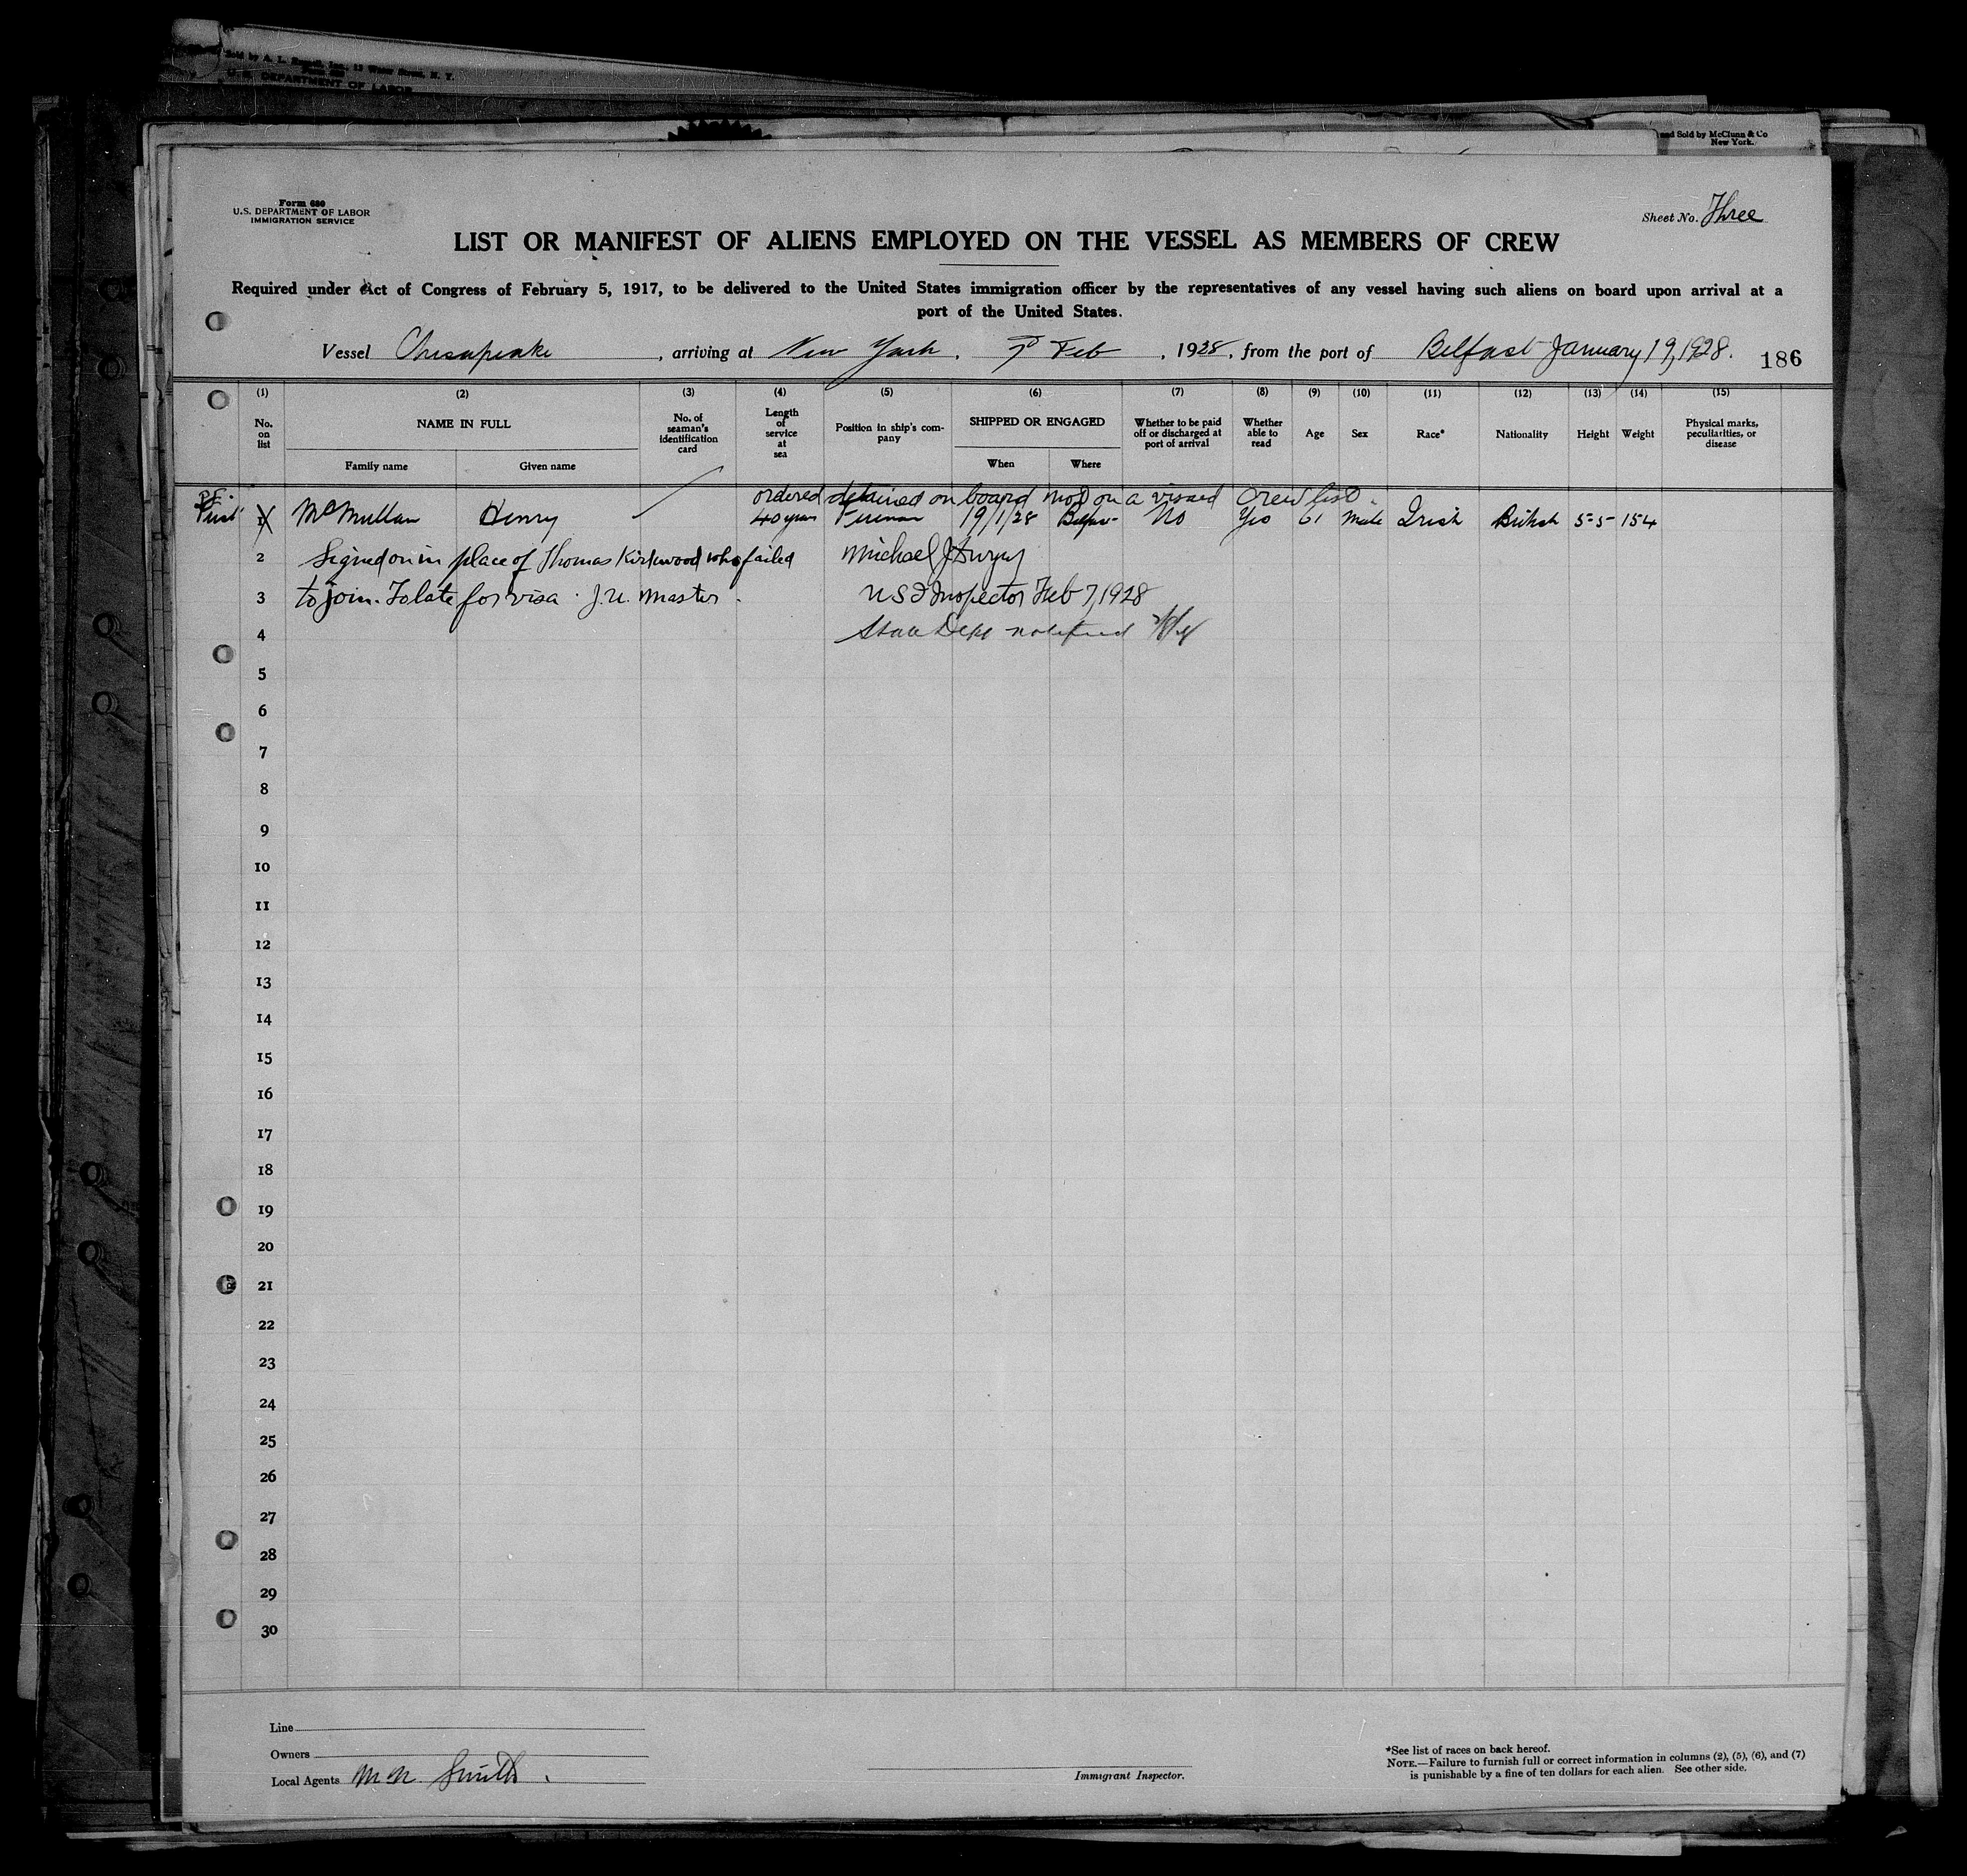 Sold by A. L. Russell, Inc., 12 Water Street, N. Y.
U. S. DEPARTMENT OF LABOR
and Sold by McClunn & Co
New York.
Form 680
U.S. DEPARTMENT OF LABOR
IMMIGRATION SERVICE
Sheet No. Three
LIST OR MANIFEST OF ALIENS EMPLOYED ON THE VESSEL AS MEMBERS OF CREW
Required under Act of Congress of February 5, 1917, to be delivered to the United States immigration officer by the representatives of any vessel having such aliens on board upon arrival at a
port of the United States.
Vessel Chesapeake, arriving at New York, 7th Feb, 1928, from the port of Belfast January 19, 1928.
186
(1) (2) (3) (4) (5) (6) (7) (8) (9) (10) (11) (12) (13) (14) (15)
No. on list
NAME IN FULL
Family name Given name
No. of seaman's identification card
Length of service at sea
Position in ship's company
SHIPPED OR ENGAGED
When Where
Whether to be paid off or discharged at port of arrival
Whether able to read
Age
Sex
Race*
Nationality
Height
Weight
Physical marks, peculiarities, or disease
ordered detained on board not on a visaed crew list.
First 1 McMullan Henry 40 years Fireman 19/1/28 Belfast No Yes 61 Male Irish British 5-5 154
2 Signed on in place of Thomas Kirkwood who failed Michael J Dwyer
3 to join. To late for visa. J.U. Master. US I Inspector Feb 7, 1928
4 State Dept notified
5
6
7
8
9
10
11
12
13
14
15
16
17
18
19
20
21
22
23
24
25
26
27
28
29
30
Line
Owners
Local Agents Smith.
Immigrant Inspector.
*See list of races on back hereof.
NOTE.—Failure to furnish full or correct information in columns (2), (5), (6), and (7)
is punishable by a fine of ten dollars for each alien. See other side.